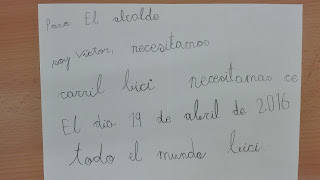 Para El alcalde
soy Víctor, necesitamos
carril bici necesitamos ce
El dia 19 de abril de 2.016
todo el mundo bici.